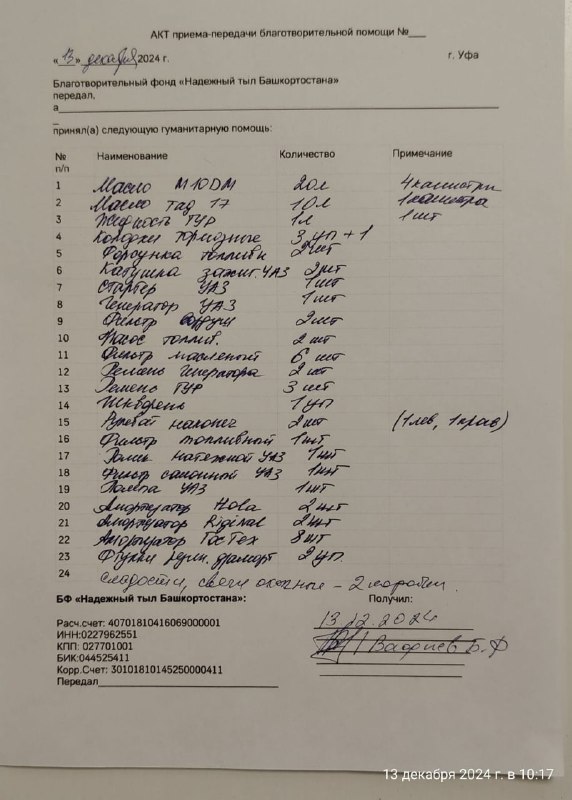 АКТ приема-передачи благотворительной помощи №___
«13» декабря 2024 г. г. Уфа
Благотворительный фонд «Надежный тыл Башкортостана»
передал,
а
принял(а) следующую гуманитарную помощь:
№ п/п Наименование Количество Примечание
1 Масло М10DM 20л 4 канистры
2 Масло тад 17 10л 1 канистра
3 Жидкость ГУР 1л 1 шт
4 Колодки тормозные 3 уп + 1
5 Форсунка топливн 2 шт
6 Катушка зажиг. УАЗ 2 шт
7 Стартер УАЗ 1 шт
8 Генератор УАЗ 1 шт
9 Фильтр воздуш 2 шт
10 Насос топлив. 2 шт
11 Фильтр масленый 6 шт
12 Ремень генератора 2 шт
13 Ремень ГУР 3 шт
14 Шкворень 1 уп
15 Рулевой наконеч 2 шт (1 лев, 1 прав)
16 Фильтр топливный 1 шт
17 Ролик натяжной УАЗ 1 шт
18 Фильтр салонный УАЗ 1 шт
19 Помпа УАЗ 1 шт
20 Амортизатор Hola 2 шт
21 Амортизатор Riginal 2 шт
22 Амортизатор ГосТех 8 шт
23 Втулки 2 уп.
24 сладости, свечи окопные - 2 коробки.
БФ «Надежный тыл Башкортостана»: Получил:
13.12.2024
Расч.счет: 40701810416069000001
ИНН:0227962551
КПП: 027701001
БИК:044525411
Корр.Счет: 30101810145250000411
Передал
13 декабря 2024 г. в 10:17